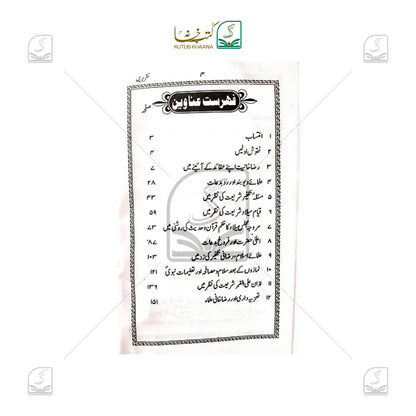 کتب خانہ
KUTUB KHAANA
۳
فہرست عناوین
صفحہ
۱ انتساب ۳
۲ نقوش اولیں ۴
۳ رضاخانیت اپنے عقائد کے آئینے میں ۷
۴ علمائے دیوبند اور رد بدعات ۲۸
۵ مسئلہ تکفیر شریعت کی نظر میں ۴۳
۶ قیام میلاد شریعت کی نظر میں ۵۹
۷ مروجہ مجلس میلاد کا حکم قرآن وحدیث کی روشنی میں ۷۳
۸ اعلیٰحضرت اور فروغ بدعات ۸۷
۹ علمائے اسلام رضاخانی تکفیر کی زد میں ۱۰۳
۱۰ نمازوں کے بعد سلام و مصافحہ اور تعلیمات نبوی ۱۲۱
۱۱ اذان علی القبر شریعت کی نظر میں ۱۳۶
۱۲ تعزیہ داری اور رضاخانی علماء ۱۵۱